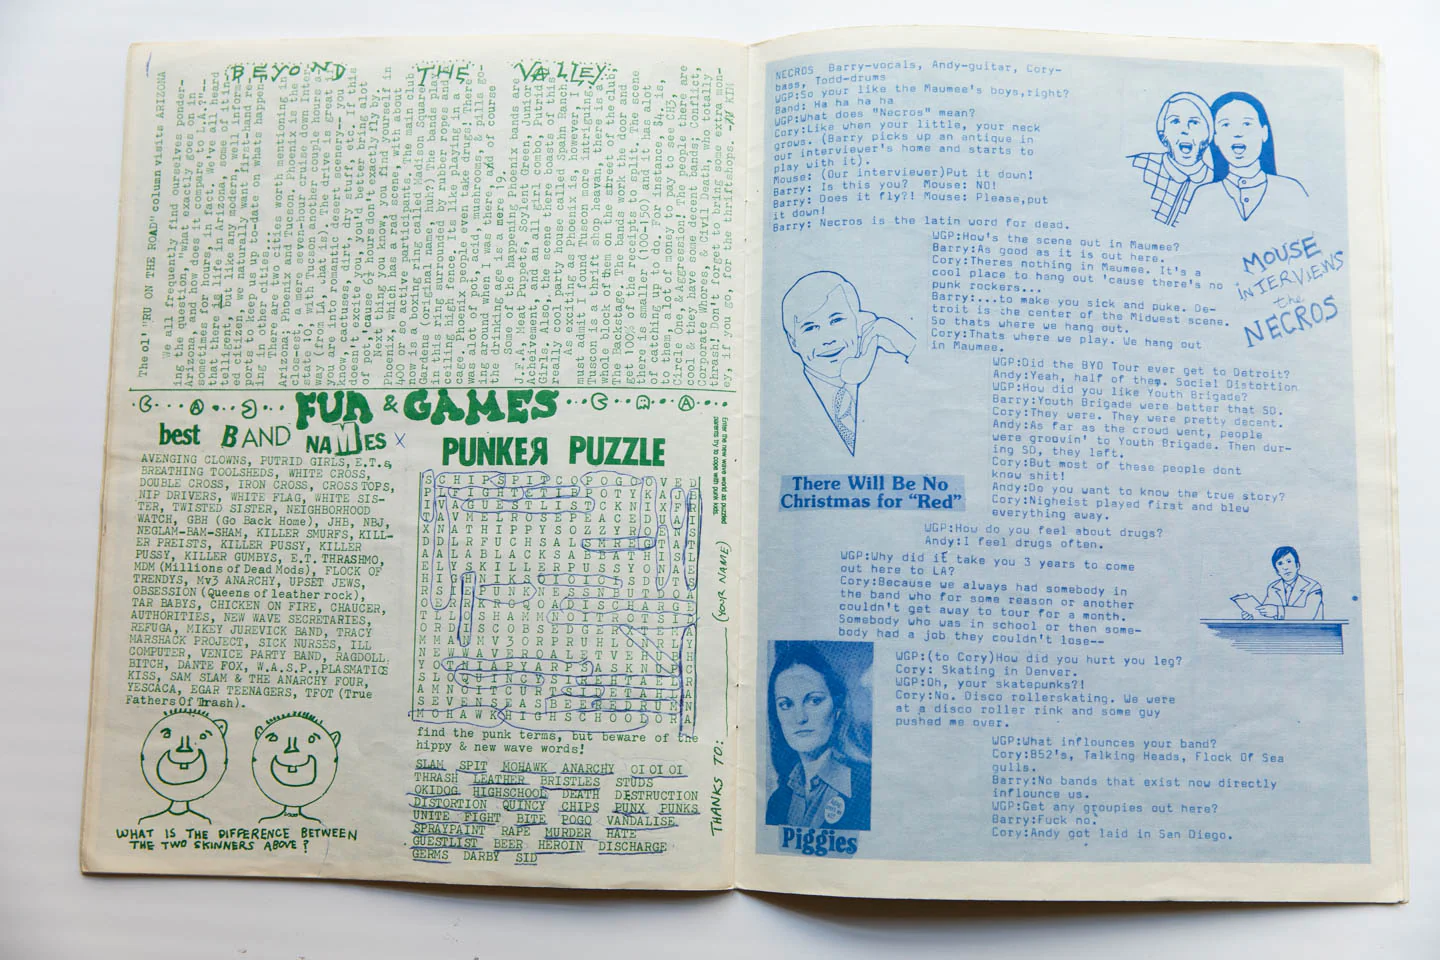 BEYOND THE VALLEY
The ol', "RU ON THE ROAD" column visits ARIZONA
We all frequently find ourselves ponder-
ing the question, "what exactly goes on in
and how does it compare to L.A.?"--
sometimes for hours, in fact. We've all heard
that there is life in Arizona, some of it in-
telligent, but like any modern, well inform-
ed citizen, we naturally want first-hand re-
ports to keep us up-to-date on whats happen-
ing in other cities...
There are two cities worth mentioning in
Arizona; Phoenix and Tucson. Phoenix is the
closest, a mere seven-hour cruise down Inter-
state 10, with Tucson another couple hours a-
way (from LA, that is). The drive is great if
you are into romantic desert scenery-- you
know, cactuses, dirt, dry stuff, etc. If this
doesn't excite you, you'd better bring alot
of pot,'cause 6½ hours don't exactly fly by
Next thing you know, you find yourself in
Phoenix, which has a rad scene, with about
400 or so active participants. The main club
is a boxing ring called Madison Square
Gardens (original name, huh?) The bands play
in this ring surrounded by rubber ropes and a
ceiling-high fence. Its like playing in a
cage. Phoenix people even take drugs! There
was alot of pot, acid, mushrooms, & pills go-
ing around when I was there. And of course
the drinking age is a mere 19.
Some of the happening Phoenix bands are
J.F.A., Meat Puppets, Soylent Green, Junior
Acheivement, and an all girl combo, Putrid
Girls. Also, the scene there boasts of this
really cool party house called Spahn Ranch.
As exciting as Phoenix is, however, I
must admit I found Tuscon more intriguing.
Tuscon is a thrift shop heavan, there is a
whole block of them on the street of the club,
The Backstage. The bands work the door and
get 100% of the receipts to split. The scene
there is smaller (100-150) and it has alot
of catching up to do. For instance $4. is,
to them, alot of money to pay to see CH3,
Circle One, & Aggression! The people there are
cool & they have some decent bands; Conflict,
Corporate Whores, & Civil Death, who totally
thrash! Don't forget to bring some extra mon-
ey, if you go, for the thriftshops.
FUN & GAMES
best BAND NAMES
AVENGING CLOWNS, PUTRID GIRLS, E.T.s,
BREATHING TOOLSHEDS, WHITE CROSS,
DOUBLE CROSS, IRON CROSS, CROSS TOPS,
NIP DRIVERS, WHITE FLAG, WHITE SIS-
TER, TWISTED SISTER, NEIGHBORHOOD
WATCH, GBH (Go Back Home), JHB, NBJ,
NEGLAM-BAM-SHAM, KILLER SMURFS, KILL-
ER PREISTS, KILLER PUSSY, KILLER
PUSSY, KILLER GUMBYS, E.T. THRASHMO,
MDM (Millions of Dead Mods), FLOCK OF
TRENDYS, Mv3 ANARCHY, UPSET JEWS,
OBSESSION (Queens of leather rock),
TAR BABYS, CHICKEN ON FIRE, CHAUCER,
AUTHORITIES, NEW WAVE SECRETARIES,
REFUGA, MIKEY JUREVICK BAND, TRACY
MARSHACK PROJECT, SICK NURSES, ILL
COMPUTER, VENICE PARTY BAND, RAGDOLL
BITCH, DANTE FOX, W.A.S.P., PLASMATIC
KISS, SAM SLAM & THE ANARCHY FOUR,
YESCACA, EGAR TEENAGERS, TFOT (True
Fathers Of Thrash).
WHAT IS THE DIFFERENCE BETWEEN
THE TWO SKINNERS ABOVE?
PUNKER PUZZLE
find the punk terms, but beware of the
hippy & new wave words!
SLAM SPIT MOHAWK ANARCHY OI OI OI
THRASH LEATHER BRISTLES STUDS
OKIDOG HIGHSCHOOL DEATH DESTRUCTION
DISTORTION QUINCY CHIPS PUNX PUNKS
UNITE FIGHT BITE POGO VANDALISE
SPRAYPAINT RAPE MURDER HATE
GUESTLIST BEER HEROIN DISCHARGE
GERMS DARBY SID
Enter the new wave world as puzzled
parents try to cope with punk kids.
THANKS TO: (YOUR NAME)
NECROS Barry-vocals, Andy-guitar, Cory-
bass, Todd-drums
WGP:So your like the Maumee's boys,right?
Band: Ha ha ha ha
WGP:What does "Necros" mean?
Cory:Like when your little, your neck
grows. (Barry picks up an antique in
our interviewer's home and starts to
play with it).
Mouse: (Our interviewer)Put it down!
Barry: Is this you? Mouse: NO!
Barry: Does it fly?! Mouse: Please,put
it down!
Barry: Necros is the latin word for dead.
WGP:How's the scene out in Maumee?
Barry:As good as it is out here.
Cory:Theres nothing in Maumee. It's a
cool place to hang out 'cause there's no
punk rockers...
Barry:...to make you sick and puke. De-
troit is the center of the Midwest scene.
So thats where we hang out.
Cory:Thats where we play. We hang out
in Maumee.
MOUSE
INTERVIEWS
the
NECROS
WGP:Did the BYO Tour ever get to Detroit?
Andy:Yeah, half of them. Social Distortion
WGP:How did you like Youth Brigade?
Barry:Youth Brigade were better that SD.
Cory:They were. They were pretty decent.
Andy:As far as the crowd went, people
were groovin' to Youth Brigade. Then dur-
ing SD, they left.
Cory:But most of these people dont
know shit!
Andy:Do you want to know the true story?
Cory:Nigheist played first and blew
everything away.
There Will Be No
Christmas for "Red"
WGP:How do you feel about drugs?
Andy:I feel drugs often.
WGP:Why did it take you 3 years to come
out here to LA?
Cory:Because we always had somebody in
the band who for some reason or another
couldn't get away to tour for a month.
Somebody who was in school or then some-
body had a job they couldn't lose--
WGP:(to Cory)How did you hurt you leg?
Cory: Skating in Denver.
WGP:Oh, your skatepunks?!
Cory:No. Disco rollerskating. We were
at a disco roller rink and some guy
pushed me over.
WGP:What influnces your band?
Cory:B52's, Talking Heads, Flock Of Sea
gulls.
Barry:No bands that exist now directly
influnce us.
WGP:Get any groupies out here?
Barry:Fuck no.
Cory:Andy got laid in San Diego.
Piggies